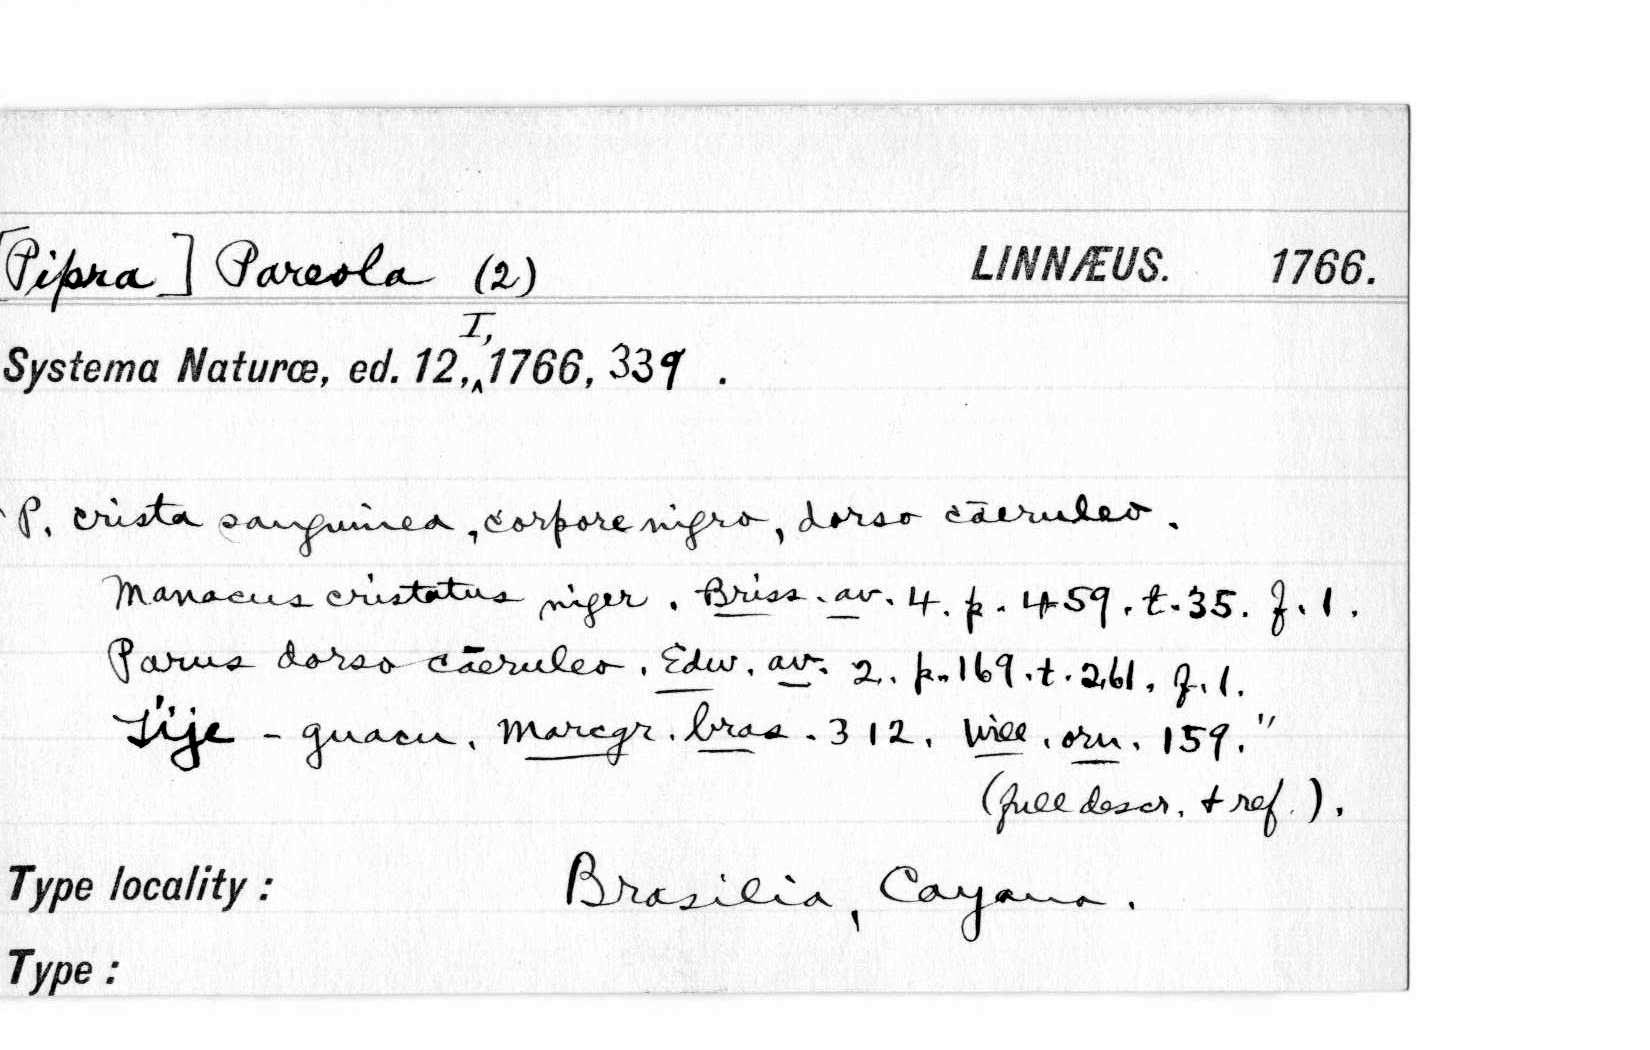 [Pipra] Pareola (2) LINNÆUS. 1766.
I,
Systema Naturæ, ed. 12,‸1766, 339 .
P. crista sanguinea, corpore nigro, dorso cāeruleo.
Manacus cristatus niger. Briss. av. 4. p. 459. t. 35. f. 1.
Parus dorso cāeruleo. Edw. av. 2. p. 169. t. 261. f. 1.
Tije - guacu. Marcgr. bras. 312. Will. orn. 159."
(full descr. + ref.).
Type locality: Brasilia, Cayana.
Type: